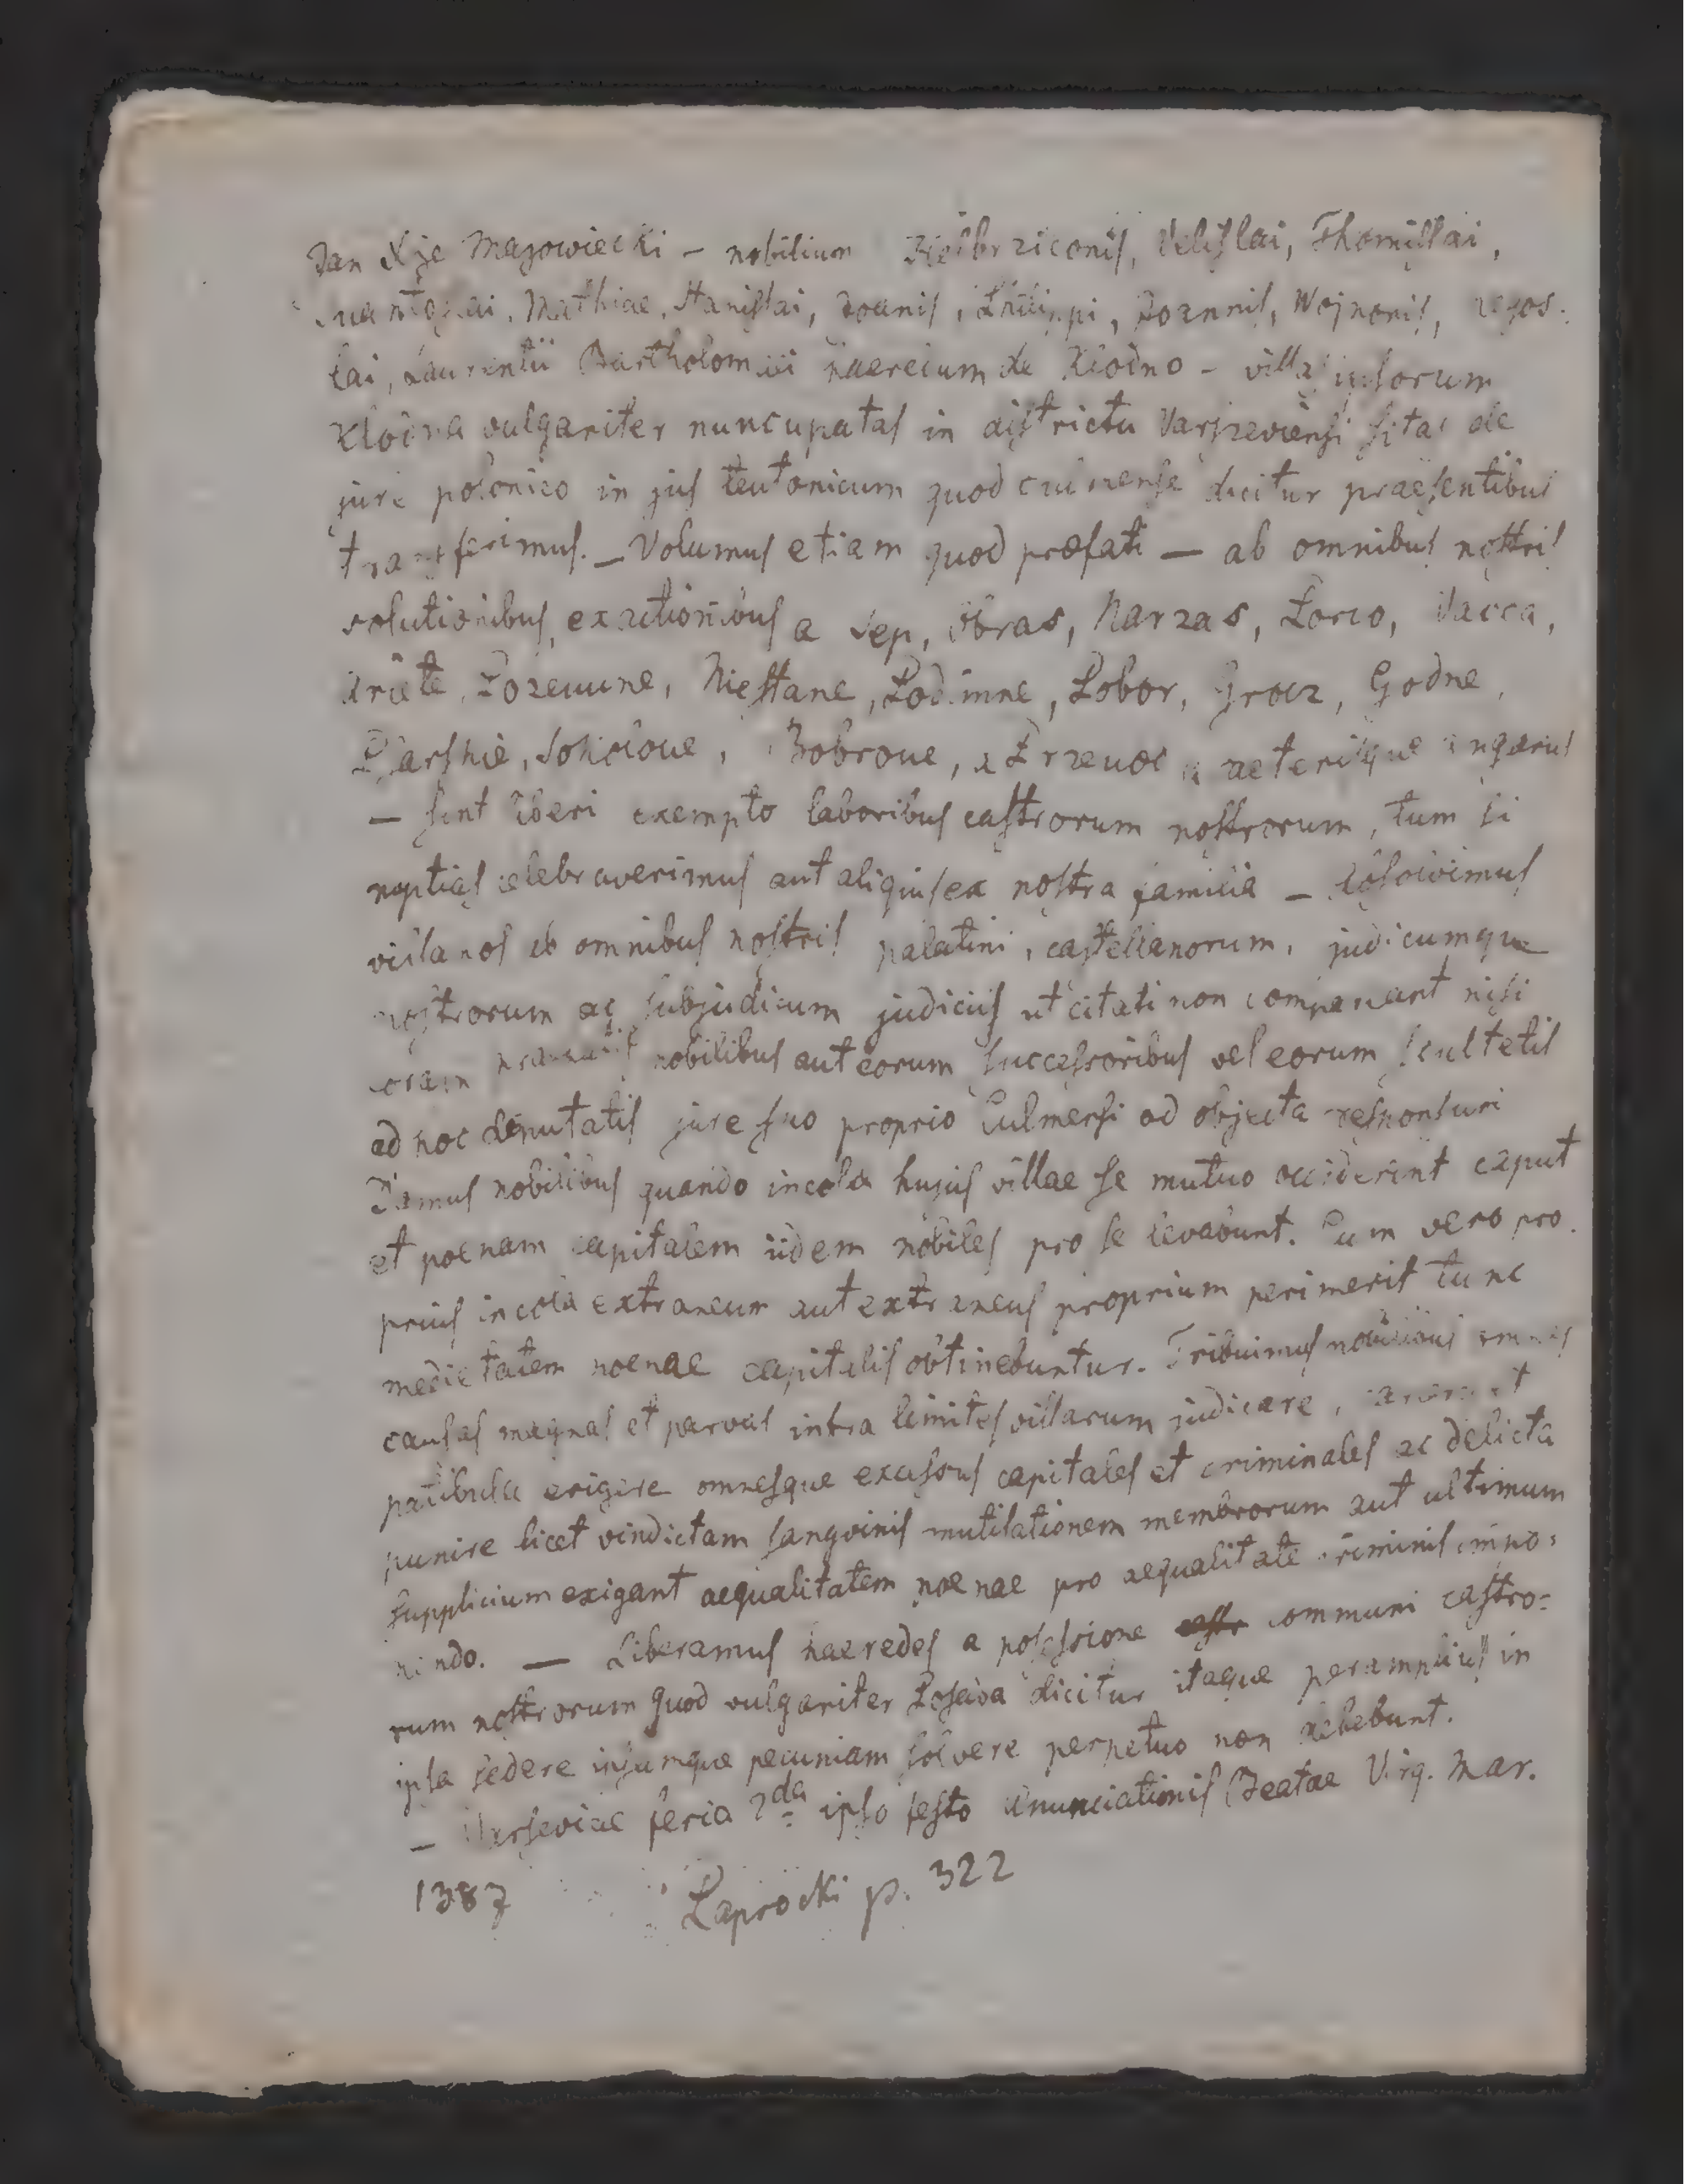 Jan Xże Mazowiecki – nobilium Velislai, Thomislai,
Mathiae, Stanislai, Joanis, Philippi, Joannis, Wojnonis,
lai, Laurentii Bartholomaei haeredum de Klodno – villas ipsorum
Klodna vulgariter nuncupatas in districtu Varszeviensi sitas de
jure polonico in jus teutonicum quod culmense dicitur praesentibus
transferimus. – Volumus etiam quod praefati – ab omnibus nostris
solutionibus, exactionibus a Sep, Obras, Narzas, Porco, Vacca,
ariete, Niestane, Podimne, Pobor, Godne,
Sokolove, Bobrove,
– sint liberi exempto laboribus castrorum nostrorum, tum si
nuptias celebraverimus aut aliquis ex nostra familia – absolvimus
villanos ab omnibus nostris palatini, castellanorum, judicumque
nostrorum ac subjudicum judiciis ut citati non compareant nisi
coram nobilibus aut eorum successoribus vel eorum scultetis
ad hoc deputatis jure suo proprio Culmensi ad objecta responsuri
Damus nobilibus quando incola hujus villae se mutuo occiderint caput
et poenam capitalem iidem nobiles pro se levabunt. Cum vero pro
prius incola extraneum aut extraneus proprium perimerit tunc
medietatem poenae capitalis obtinebuntur. Tribuimus nobilibus omnes
causas magnas et parvas intra limites villarum judicare,
patibula erigere omnesque excessus capitales et criminales ac delicta
punire licet vindictam sangvinis mutilationem membrorum aut ultimum
supplicium exigant aequalitatem poenae pro aequalitate criminis impo=
nendo. — Liberamus haeredes a possessione communi castro=
rum nostrorum quod vulgariter Posada dicitur itaque peramplius in
ipsa sedere ipsamque pecuniam solvere perpetuo non debebunt.
– Varseviae feria 2da ipso festo Annunciationis Beatae Virg. Mar.
1387 Paprocki p. 322